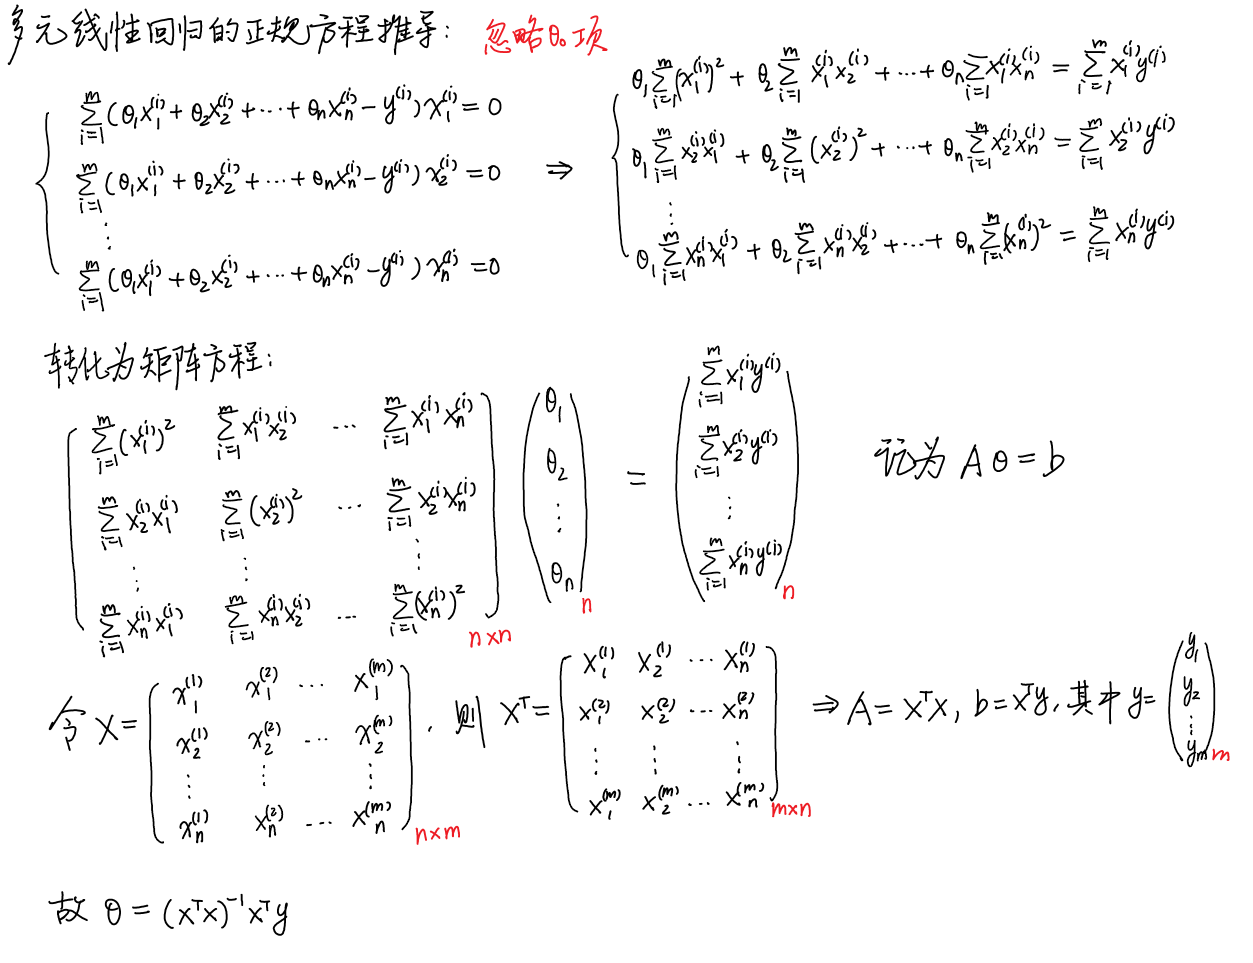 多元线性回归的正规方程推导： 忽略θ₀项
∑_{i=1}^{m}(θ₁x₁^{(i)}+θ₂x₂^{(i)}+⋯+θₙxₙ^{(i)}−y^{(i)})x₁^{(i)}=0
∑_{i=1}^{m}(θ₁x₁^{(i)}+θ₂x₂^{(i)}+⋯+θₙxₙ^{(i)}−y^{(i)})x₂^{(i)}=0
⋮
∑_{i=1}^{m}(θ₁x₁^{(i)}+θ₂x₂^{(i)}+⋯+θₙxₙ^{(i)}−y^{(i)})xₙ^{(i)}=0
⇒
θ₁∑_{i=1}^{m}(x₁^{(i)})²+θ₂∑_{i=1}^{m}x₁^{(i)}x₂^{(i)}+⋯+θₙ∑_{i=1}x₁^{(i)}xₙ^{(i)}=∑_{i=1}^{m}x₁^{(i)}y^{(i)}
θ₁∑_{i=1}^{m}x₂^{(i)}x₁^{(i)}+θ₂∑_{i=1}^{m}(x₂^{(i)})²+⋯+θₙ∑_{i=1}^{m}x₂^{(i)}xₙ^{(i)}=∑_{i=1}^{m}x₂^{(i)}y^{(i)}
⋮
θ₁∑_{i=1}^{m}xₙ^{(i)}x₁^{(i)}+θ₂∑_{i=1}^{m}xₙ^{(i)}x₂^{(i)}+⋯+θₙ∑_{i=1}^{m}(xₙ^{(i)})²=∑_{i=1}^{m}xₙ^{(i)}y^{(i)}
转化为矩阵方程：
∑_{i=1}^{m}(x₁^{(i)})² ∑_{i=1}^{m}x₁^{(i)}x₂^{(i)} ⋯ ∑_{i=1}^{m}x₁^{(i)}xₙ^{(i)}
∑_{i=1}^{m}x₂^{(i)}x₁^{(i)} ∑_{i=1}^{m}(x₂^{(i)})² ⋯ ∑_{i=1}^{m}x₂^{(i)}xₙ^{(i)}
⋮ ⋮ ⋮
∑_{i=1}^{m}xₙ^{(i)}x₁^{(i)} ∑_{i=1}^{m}xₙ^{(i)}x₂^{(i)} ⋯ ∑_{i=1}^{m}(xₙ^{(i)})²
n×n
θ₁
θ₂
⋮
θₙ
n
=
∑_{i=1}^{m}x₁^{(i)}y^{(i)}
∑_{i=1}^{m}x₂^{(i)}y^{(i)}
⋮
∑_{i=1}^{m}xₙ^{(i)}y^{(i)}
n
记为 Aθ=b
令 X=
x₁^{(1)} x₁^{(2)} ⋯ x₁^{(m)}
x₂^{(1)} x₂^{(2)} ⋯ x₂^{(m)}
⋮ ⋮ ⋮
xₙ^{(1)} xₙ^{(2)} ⋯ xₙ^{(m)}
n×m
，则 Xᵀ=
x₁^{(1)} x₂^{(1)} ⋯ xₙ^{(1)}
x₁^{(2)} x₂^{(2)} ⋯ xₙ^{(2)}
⋮ ⋮ ⋮
x₁^{(m)} x₂^{(m)} ⋯ xₙ^{(m)}
m×n
⇒ A=XᵀX, b=Xᵀy, 其中 y=
y₁
y₂
⋮
yₘ
m
故 θ=(XᵀX)⁻¹Xᵀy